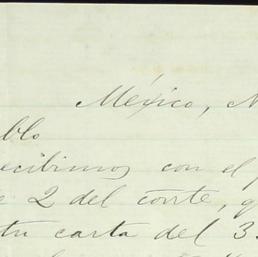 México,
blo
ecibimos con el
2 del corte,
tu carta del 3